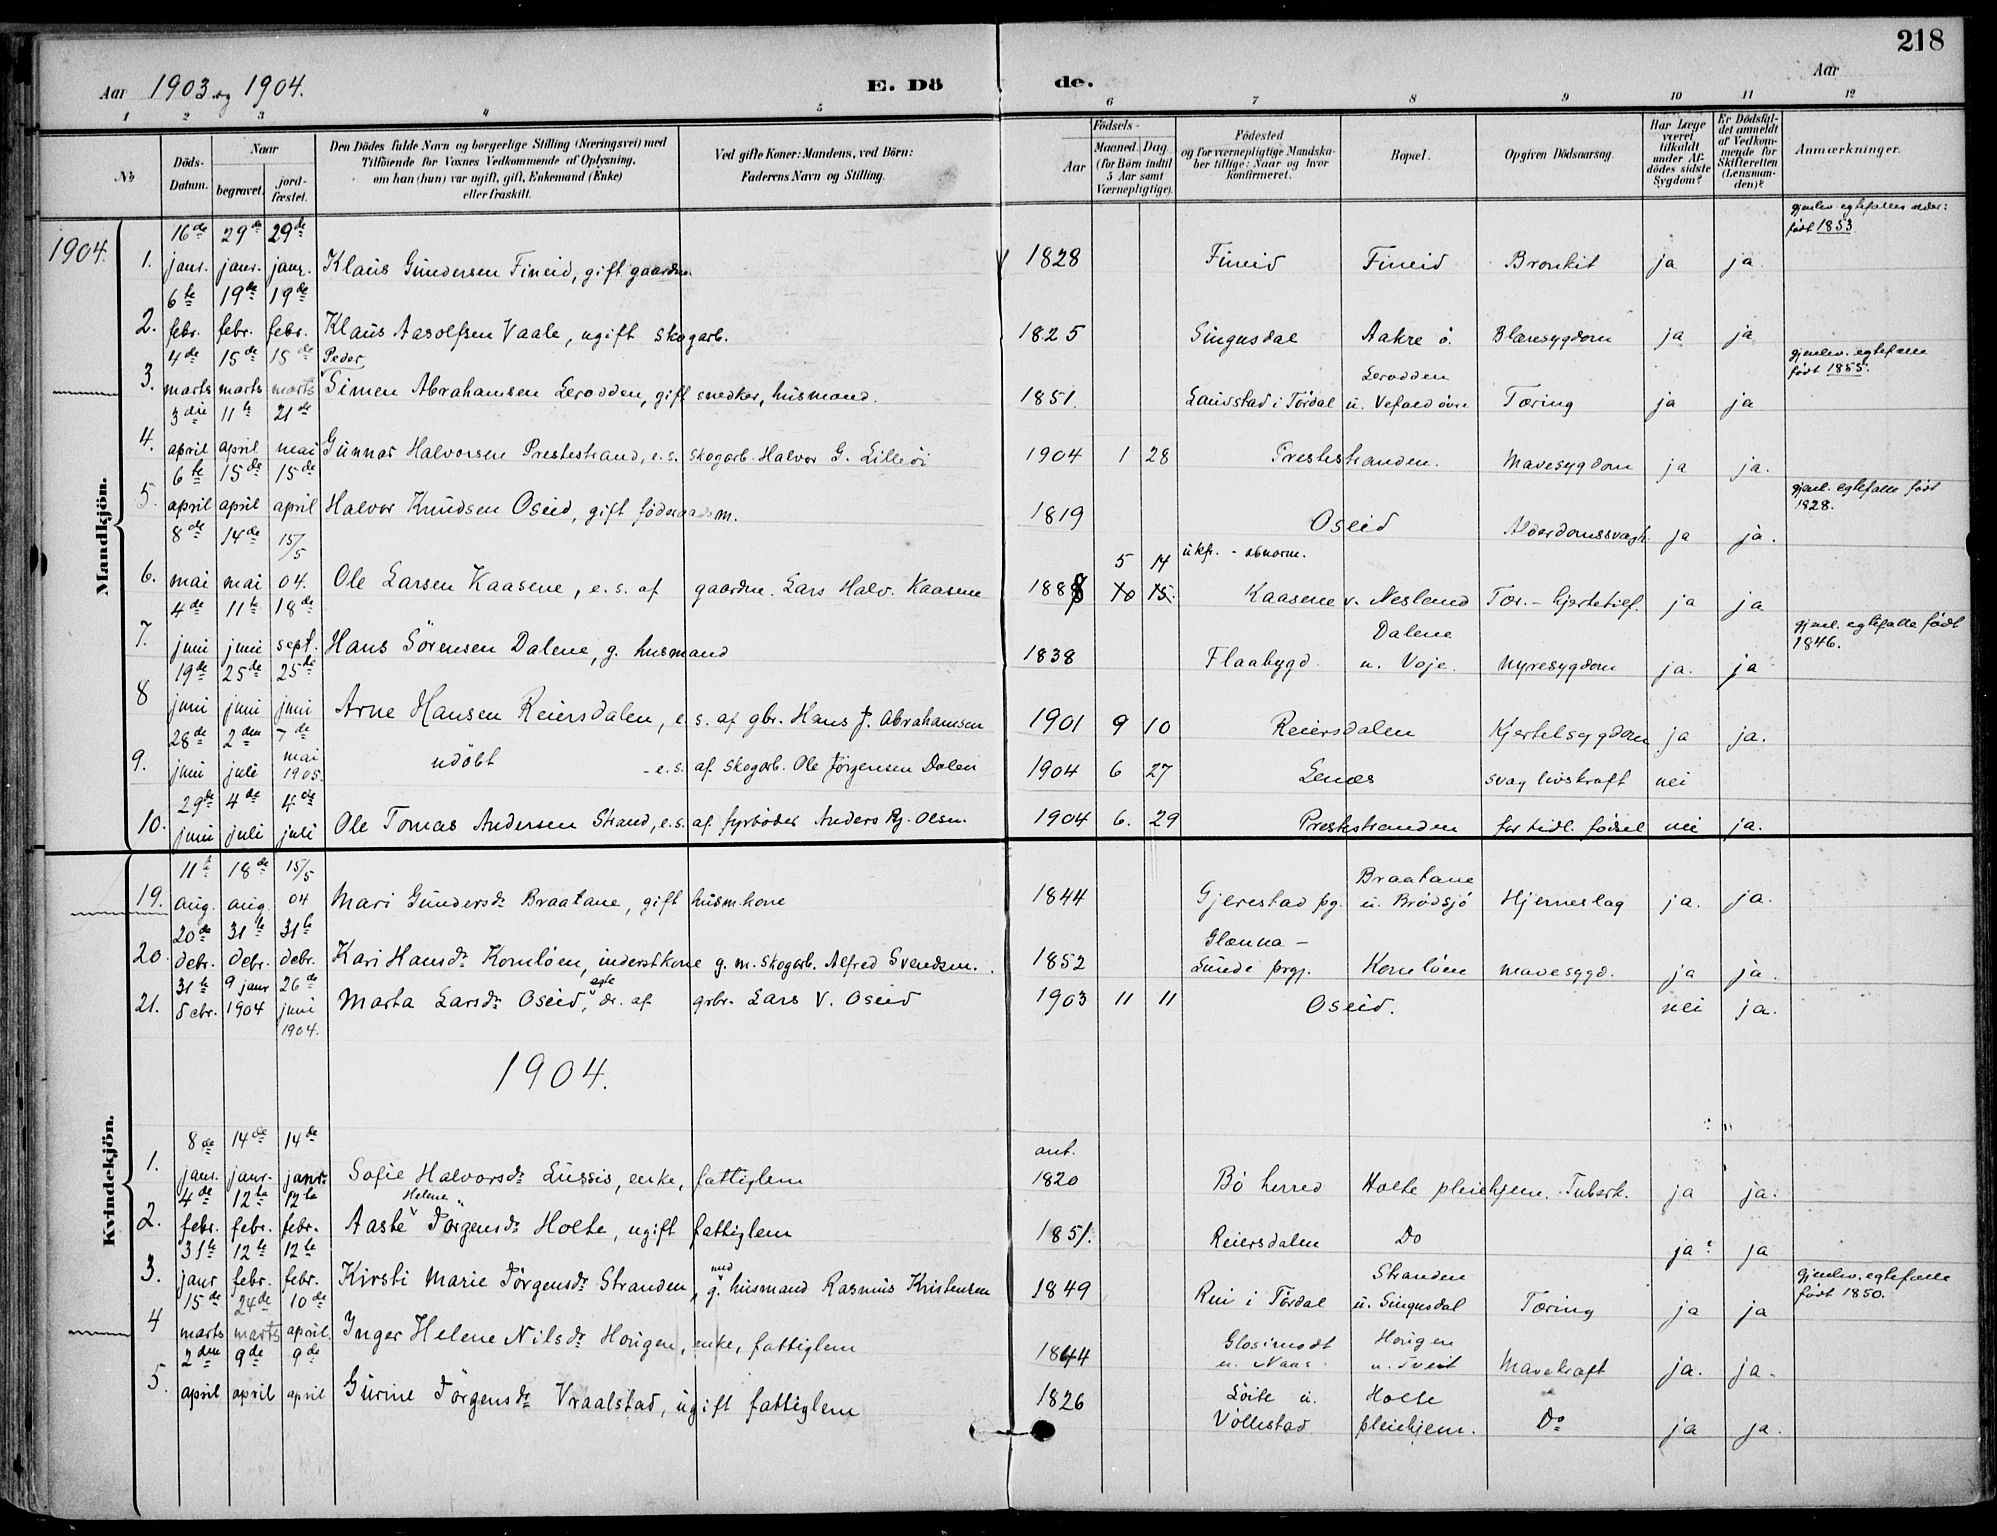 218
Aar 1903 og 1904. E. Dö de. Aar
1 2 3 4 5 6 7 8 9 10 11 12
№
Döds-Datum.
Naar
begravet.
jord-fæstet.
Den Dödes fulde Navn og borgerlige Stilling (Næringsvei) med
Tilföiende for Voxnes Vedkommende af Oplysning,
om han (hun) var ugift, gift, Enkemand (Enke)
eller fraskilt.
Ved gifte Koner: Mandens, ved Börn:
Faderens Navn og Stilling.
Födsels-
Aar
Maaned. Dag.
(for Börn indtil
5 Aar samt
Værnepligtige).
Födested
og for værnepligtige Mandska-
ber tillige: Naar og hvor
konfirmeret.
Bopæl.
Opgiven Dödsaarsag.
Har Læge
været
tilkaldt
under Af-
dödes sidste
Sygdom?
Er Dödsfal-
det anmeldt
af Vedkom-
mende for
Skifteretten
(Lensman-
den)?
Anmærkninger.
Mandkjön.
1904.
1. 16de janr. 29de janr. 29de janr. Klaus Gundersen Fineid, gift gaardm. 1828 Fineid Fineid Bronkit ja ja. gjenlev. egtefælles alder: født 1853
2. 6te febr. 19de febr. 19de febr. Klaus Aasolfsen Vaale, ugift skogarb. 1825 Singusdal Aakre ö. Blæresygdom ja ja
3. 4de marts 15de marts 15de marts Peder Simen Abrahamsen Lerodden, gift snedker, husmand. 1851. Lauvstad i Tördal Lerodden u. Vefald övre Tæring ja ja gjenlev. egtefælle født 1855.
4. 3die april 11te april 21de mai Gunnar Halvorsen Prestestrand, e. s. skogarb. Halvor G. Lilleöi 1904 1 28 Prestestranden. Mavesygdom ja ja.
5. 6te april 15de april 15de april Halvor Knudsen Oseid, gift föderaadsm. 1819 Oseid Alderdomssvagh. ja ja. gjenl. egtefælle født 1828.
6. 8de mai 14de mai 15/5 04. Ole Larsen Kaasene, e. s. af gaardm. Lars Halv. Kaasene 1888 5 14 10 15. ukfr. - abnorm. Kaasene v. Nesland Tær. - hjertelif. ja ja
7. 4de juni 11te juni 18de sept. Hans Sörensen Dalene, g. husmand 1838 Flaabygd Dalene u. Voje. Nyresygdom ja. ja gjenl. egtefælle født 1846.
8 19de juni 25de juni 25de juni Arne Hansen Reiersdalen, e. s. af gbr. Hans J. Abrahamsen 1901 9 10 Reiersdalen Kjertelsygdom ja ja.
9. 28de juni 2den juli 7de mai 1905. udöbt - e. s. af skogarb. Ole Jörgensen Dalen 1904 6 27 Lenæs svag livskraft nei
10. 29de juni 4de juli 4de juli Ole Tomas Andersen Strand, e. s. af fyrböder Anders Pj. Olsen. 1904 6. 29 Prestestranden for tidl. födsel nei ja.
Kvindekjön.
19. 11te aug. 18de aug. 15/5 04 Mari Gundersdr Braatane, gift husm.kone 1844 Gjerestad pg. Braatane u. Brödsjö Hjerneslag ja. ja.
20. 20de debr. 31te debr. 31te debr. Kari Hansdr Kornlöen, inderstkone g. m. skogarb. Alfred Svendsen. 1852 Glenna - Lunde prgj. Kornlöen mavesygd. ja ja.
21. 31te debr. 9 janr 1904 26de juni 1904. Marta Larsdr Oseid, egte dr. af grbr. Lars V. Oseid 1903 11 11 Oseid. nei ja.
1904.
1. 8de janr. 14de janr. 14de janr. Sofie Halvorsdr Lussis, enke, fattiglem ant. 1820 Bö herred Holte pleiehjem. Tuberk. ja ja.
2. 4de febr. 12te febr. 12te febr. Aaste Helene Jörgensdr Holte, ugift fattiglem 1851. Reiersdalen Do ja? ja
3. 31te janr 12te febr. 12te febr. Kirsti Marie Jörgensdr Stranden, g. med husmand Rasmus Kristensen 1849 Rui i Tördal Stranden u. Singusdal Tæring ja ja gjenlev. egtefælle født 1850.
4 15de marts 24de marts 10de april Inger Helene Nilsdr Horigen, enke, fattiglem 1844 Glosimodt u. Naas. Horigen u. Tveit Mavekræft ja. ja.
5. 2den april 9de april 9de april Gurine Jörgensdr Vraalstad, ugift fattiglem 1826 Löite u. Völlestad Holte pleiehjem. Do ja ja.